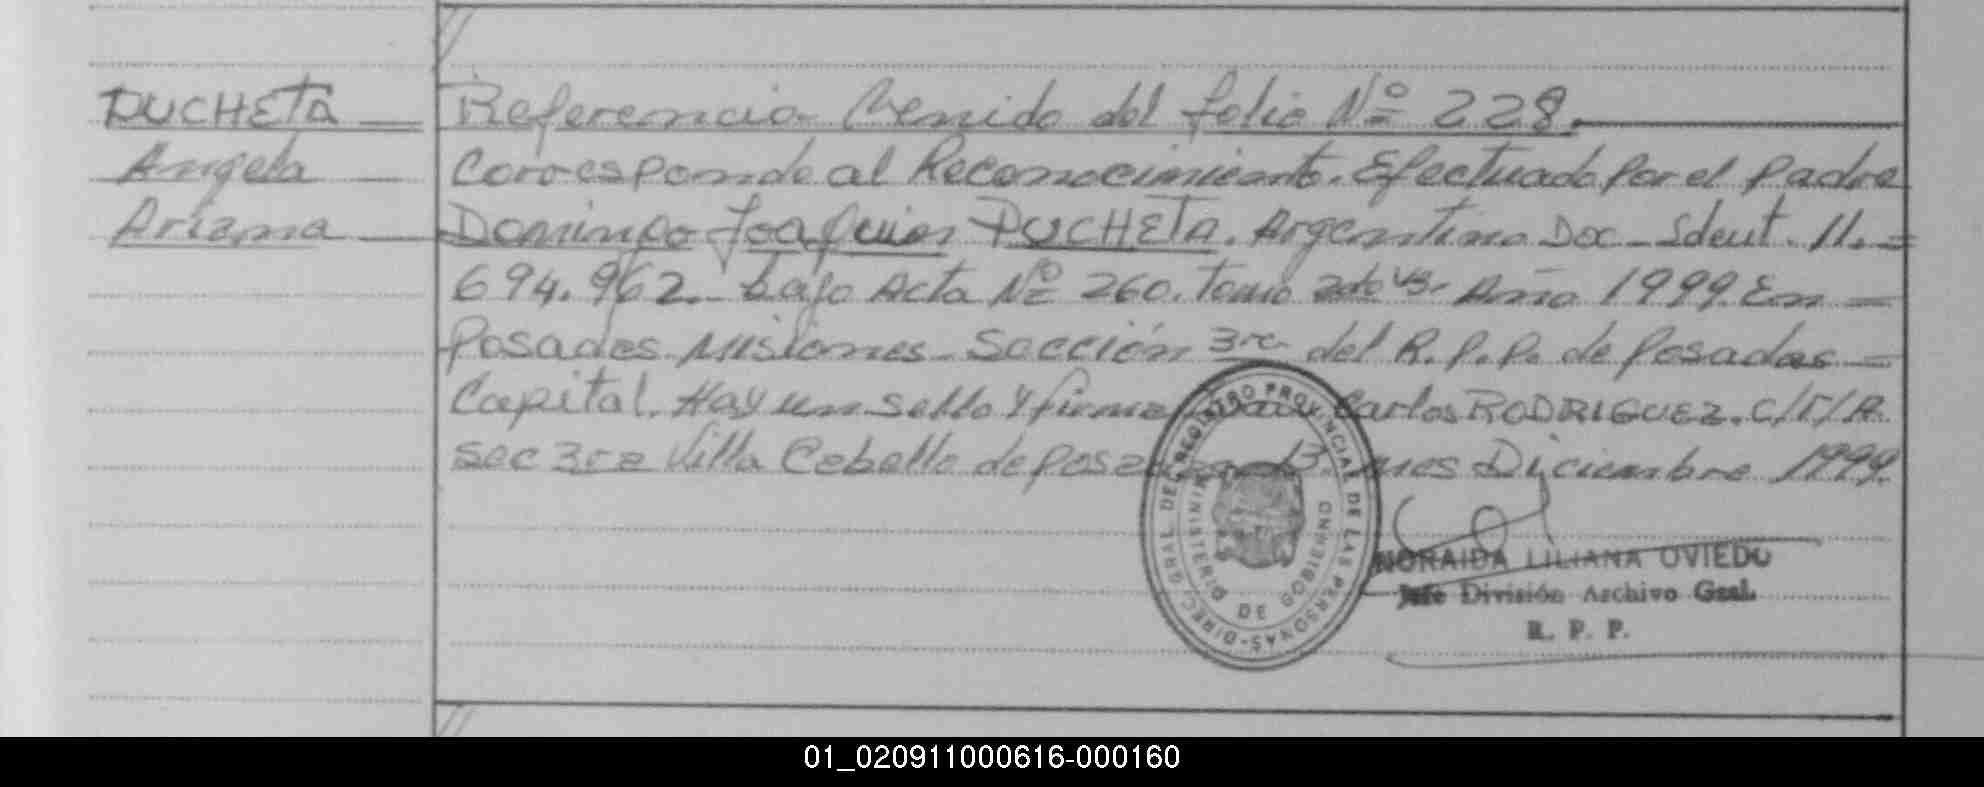 DUCHETA
Angela
Arizma
Referencia Venido del folio Nº 228.
Corresponde al Reconocimiento. Efectuado Por el Padre
Domingo Joaquin DUCHETA. Argentino Doc. Ident. 11.=
694.962. bajo Acta Nº 260. Tomo 2do Año 1999. En =
Posadas Misiones. Sección 3ra del R.P.P. de Posadas =
Capital. Hay un sello y firma Carlos RODRIGUEZ. C/T/R.
Sec 3ra Villa Cabello de Posadas 13. mes Diciembre 1999.
DIREC. GRAL. DEL REGISTRO PROVINCIAL DE LAS PERSONAS
MINISTERIO DE GOBIERNO
NORAIDA LILIANA OVIEDO
Jefe División Archivo Gral.
R. P. P.
01_020911000616-000160